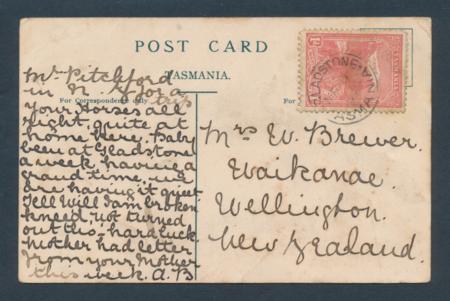 POST CARD
TASMANIA.
For Correspondence only
For
Mr Pitchford
in N. Z for a
trip
your Horses all
right, quite at
home here. Baby
been at Gladstone
a week having a
grand time, we
are having it quiet
Tell Will Sam broken
kneed not turned
out this, hard luck.
Mother had letter
from your Mother
this week. A.B
Mrs W. Brewer.
Waikanae.
Wellington.
New Zealand.
1d
TASMANIA
GLADSTONE
TASMANIA